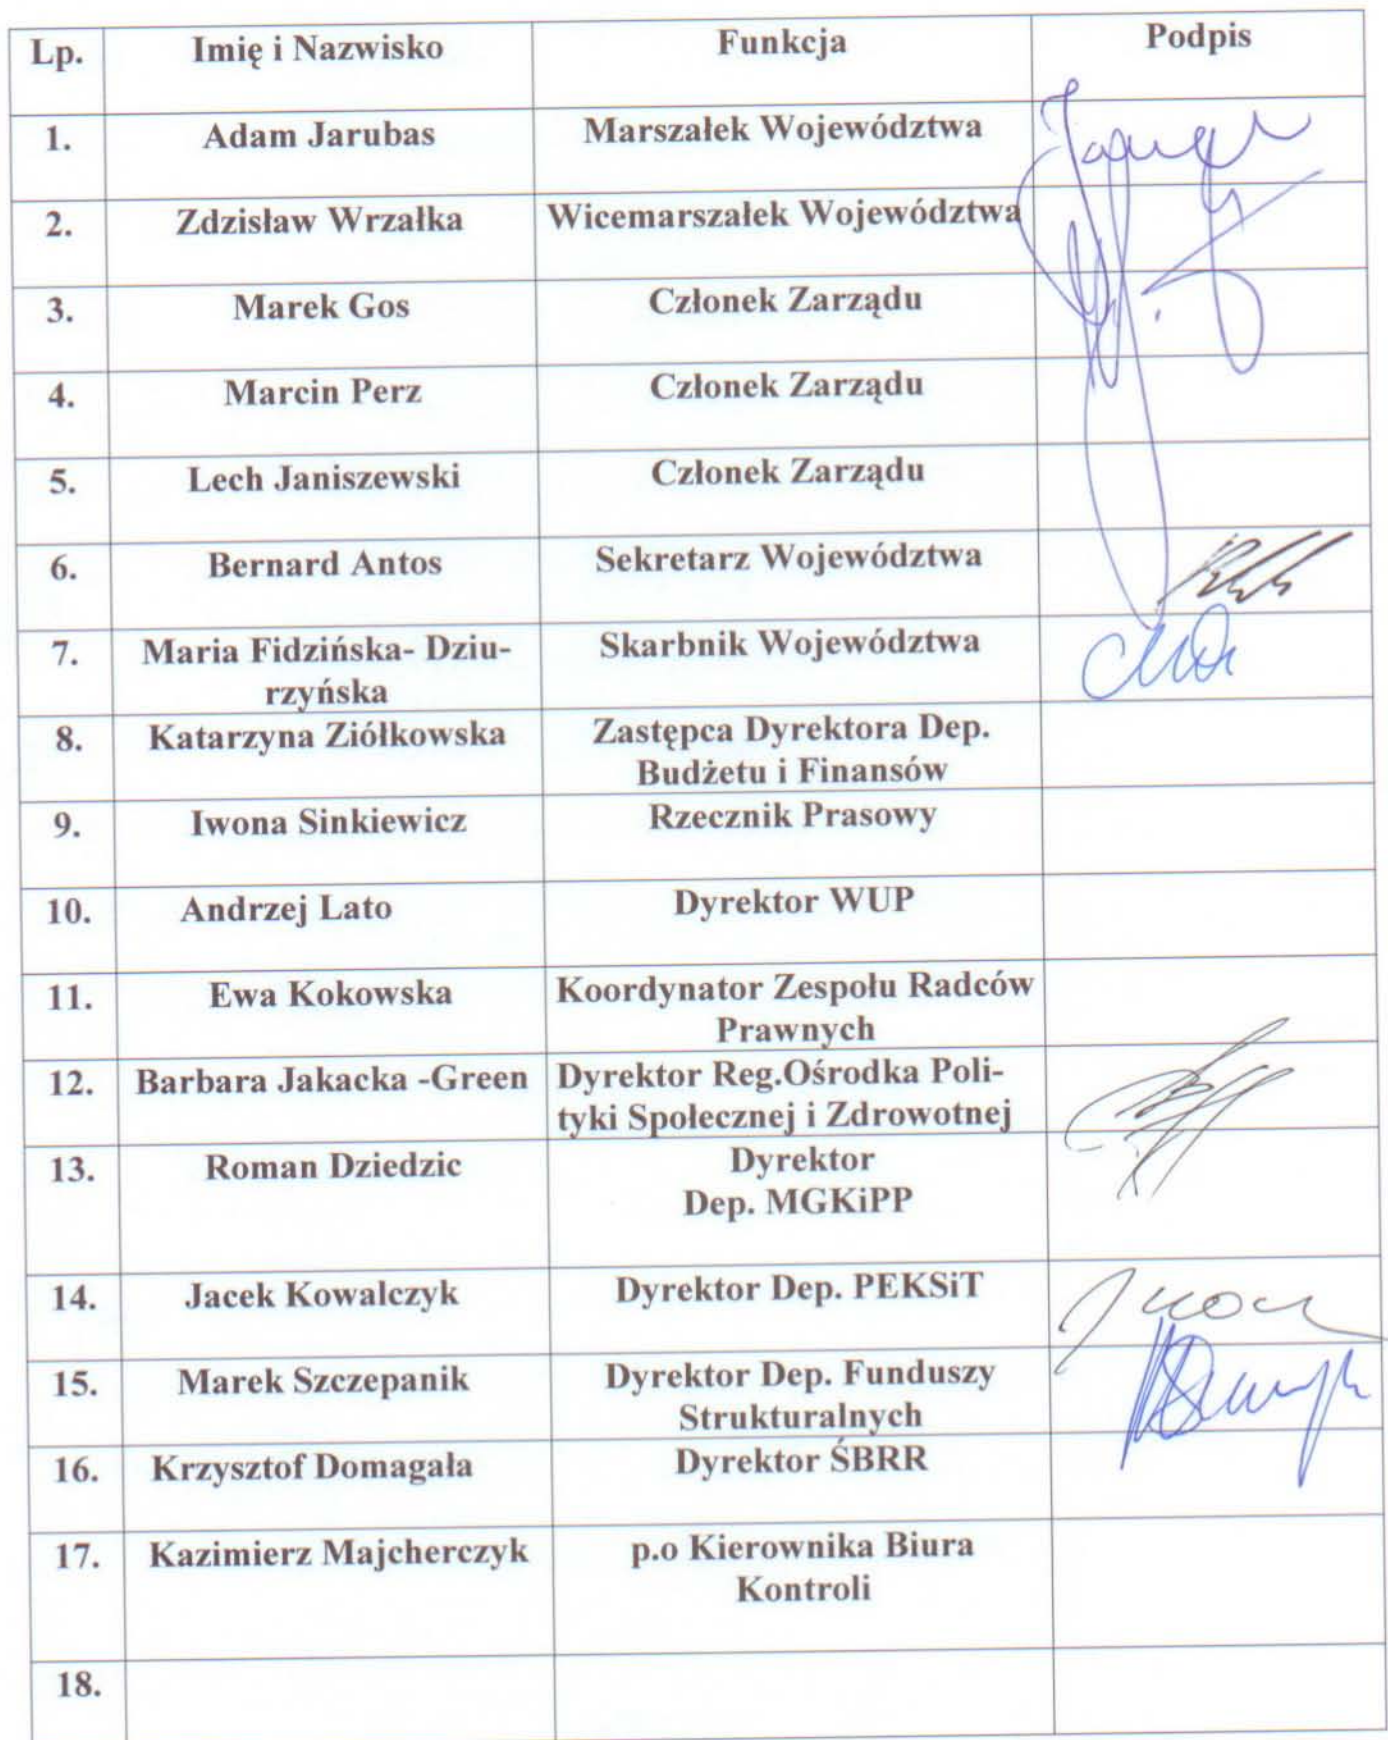 Lp. Imię i Nazwisko Funkcja Podpis
1. Adam Jarubas Marszałek Województwa
2. Zdzisław Wrzałka Wicemarszałek Województwa
3. Marek Gos Członek Zarządu
4. Marcin Perz Członek Zarządu
5. Lech Janiszewski Członek Zarządu
6. Bernard Antos Sekretarz Województwa
7. Maria Fidzińska- Dziu- Skarbnik Województwa
rzyńska
8. Katarzyna Ziółkowska Zastępca Dyrektora Dep.
Budżetu i Finansów
9. Iwona Sinkiewicz Rzecznik Prasowy
10. Andrzej Lato Dyrektor WUP
11. Ewa Kokowska Koordynator Zespołu Radców
Prawnych
12. Barbara Jakacka -Green Dyrektor Reg.Ośrodka Poli-
tyki Społecznej i Zdrowotnej
13. Roman Dziedzic Dyrektor
Dep. MGKiPP
14. Jacek Kowalczyk Dyrektor Dep. PEKSiT
15. Marek Szczepanik Dyrektor Dep. Funduszy
Strukturalnych
16. Krzysztof Domagała Dyrektor ŚBRR
17. Kazimierz Majcherczyk p.o Kierownika Biura
Kontroli
18.